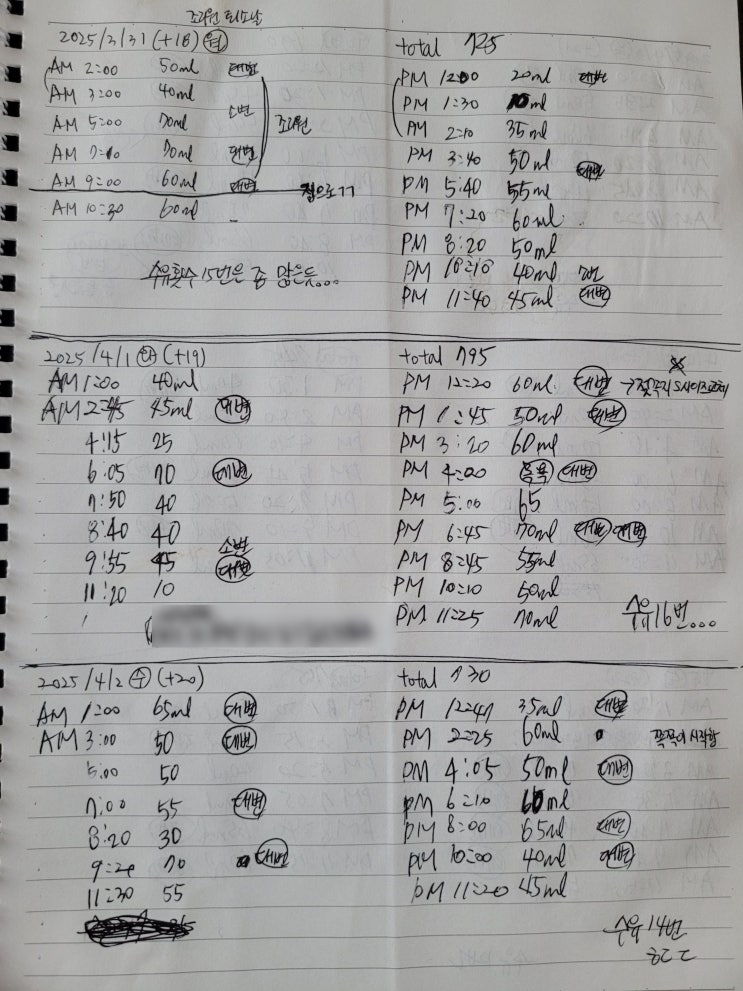 조리원 퇴소날
2025/3/31 (+18) 월
AM 2:00 50ml 대변
AM 3:00 40ml
AM 5:00 70ml 소변
AM 7:10 70ml 대변
조리원
AM 9:00 60ml 대변
집으로 ㄱㄱ
AM 10:30 60ml -
수유횟수 15번은 좀 많은듯...
total 725
PM 12:00 20ml 대변
PM 1:30 10ml
AM 2:10 35ml
PM 3:40 50ml
대변
PM 5:40 55ml
PM 7:20 60ml
PM 8:20 50ml
PM 10:10 40ml
PM 11:40 45ml 대변
2025/4/1 화 (+19)
AM 1:00 40ml
AM 2:45 45ml 대변
4:15 25
6:05 70 대변
7:50 40
8:40 40
소변
9:55 45 대변
11:20 10
total 795
PM 12:20 60ml 대변 →젖꼭지 S사이즈교체
PM 1:45 50ml 대변
PM 3:20 60ml
PM 4:00 목욕 대변
PM 5:00 65
PM 6:45 70ml 대변 대변
PM 8:45 55ml
PM 10:10 50ml
PM 11:25 70ml 수유16번...
2025/4/2 수 (+20)
AM 1:00 65ml 대변
AM 3:00 50 대변
5:00 50
7:00 55 대변
8:20 30
9:20 70 대변
11:30 55
total 730
PM 12:47 35ml 대변
PM 2:25 60ml 쪽쪽이 시작함
PM 4:05 50ml 대변
PM 6:10 60ml
PM 8:00 65ml 대변
PM 10:00 40ml 대변
PM 11:20 45ml
수유 14번
ㅎㄷㄷ